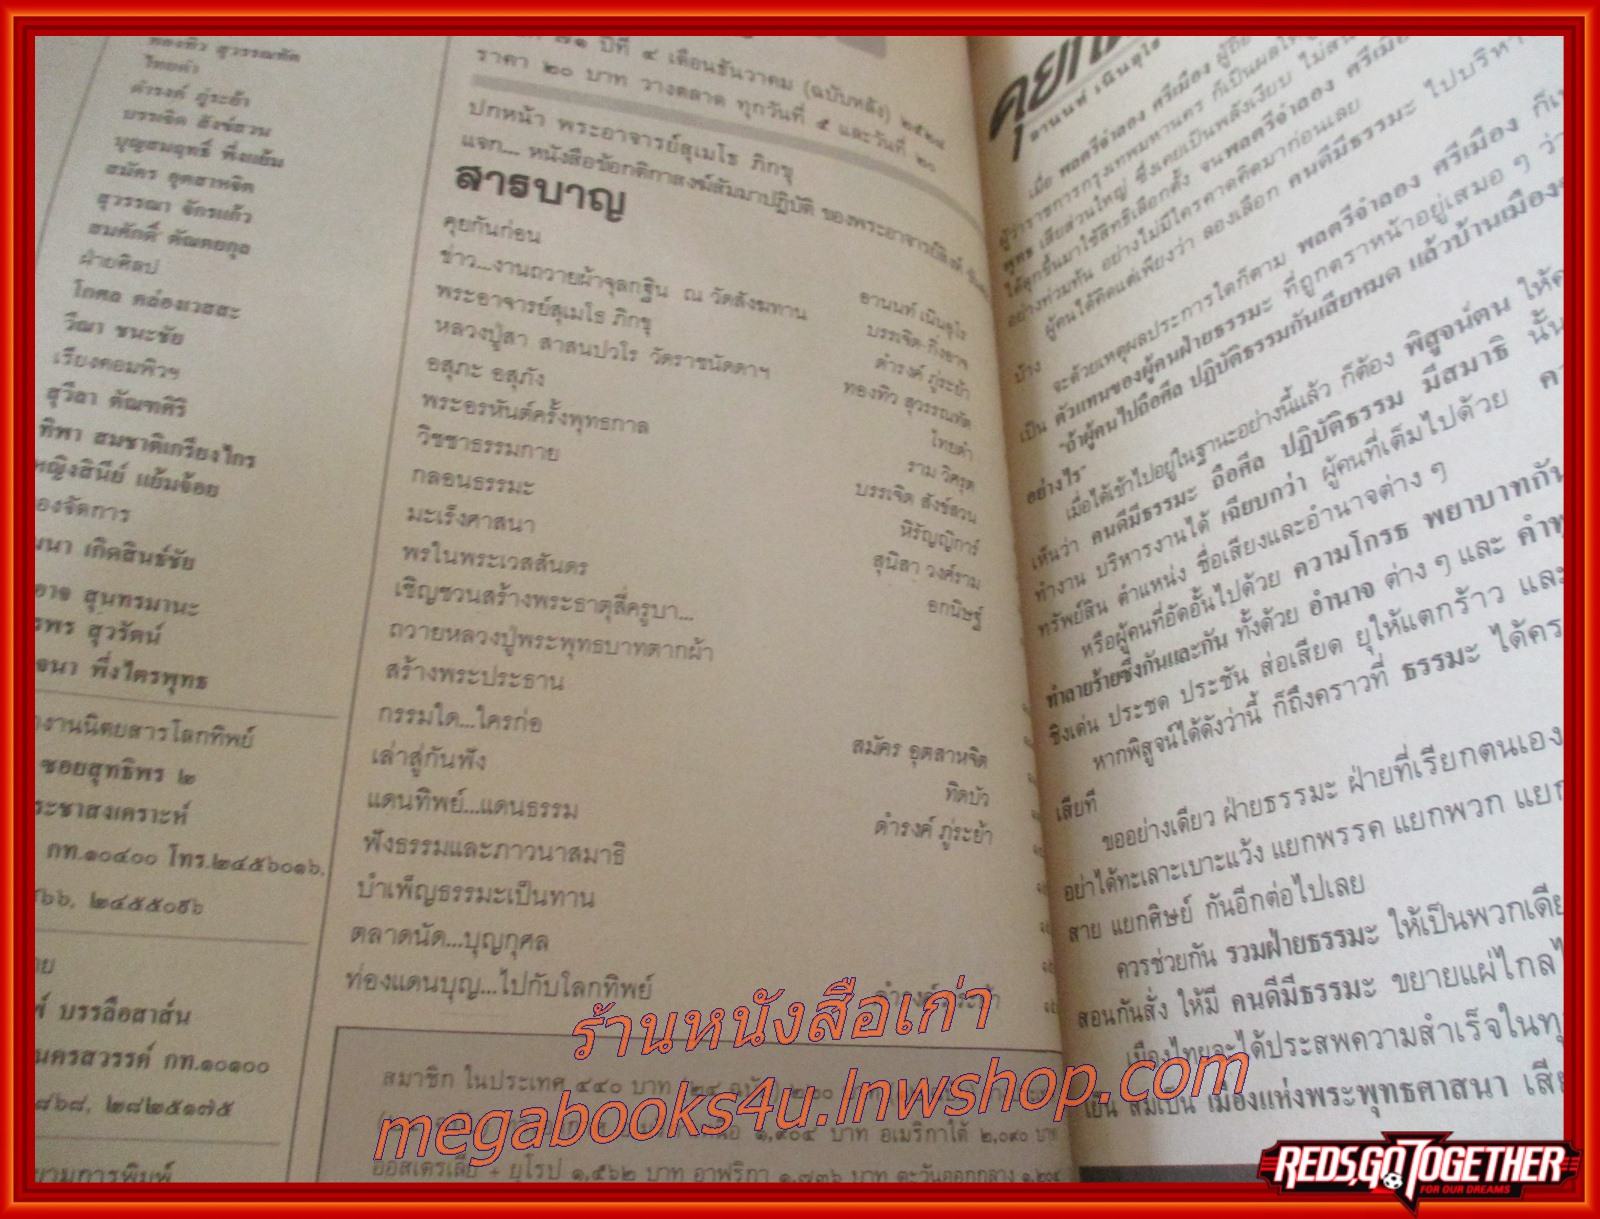 ทองทิว สุวรรณทัต
ไทยดำ
ดำรงค์ ภู่ระย้า
บรรเจิด สังข์สวน
บุญสมฤทธิ์ พึ่งแย้ม
สมัคร อุตสาหจิต
สุวรรณา จักรแก้ว
สมศักดิ์ ตัณตยกุล
ฝ่ายศิลป
โกศล คล่องเวสสะ
วีณา ชนะชัย
เรียงคอมพิวฯ
สุวีลา ตัณฑศิริ
ทิพา สมชาติเกรียงไกร
หญิงสินีย์ แย้มจ้อย
องจัดการ
นา เกิดสินธ์ชัย
อาจ สุนทรมานะ
รพร สุวรัตน์
จนา พึ่งไตรพุทธ
งานนิตยสารโลกทิพย์
ซอยสุทธิพร ๒
ระชาสงเคราะห์
กท.๑๐๔๐๐ โทร.๒๔๕๖๐๑๖,
๒๔๕๕๐๙๖
บรรลือสาส์น
นครสวรรค์ กท.๑๐๑๐๐
๘๖๘, ๒๘๒๕๑๗๕
ยามการพิมพ์
๗๑ ปีที่ ๔ เดือนธันวาคม (ฉบับหลัง) ๒๕๒๘
ราคา ๒๐ บาท วางตลาด ทุกวันที่ ๕ และวันที่ ๒๐
ปกหน้า พระอาจารย์สุเมโธ ภิกขุ
แจก... หนังสือข้อกติกาสงฆ์สัมมาปฏิบัติ ของพระอาจารย์สิงห์
สารบาญ
คุยกันก่อน อานนท์ เนินอุไร
ข่าว...งานถวายผ้าจุลกฐิน ณ วัดสังฆทาน บรรเจิด-กิ่งอาจ
พระอาจารย์สุเมโธ ภิกขุ ดำรงค์ ภู่ระย้า
หลวงปู่สา สาสนปวโร วัดราชนัดดาฯ ทองทิว สุวรรณทัต
อสุภะ อสุภัง ไทยดำ
พระอรหันต์ครั้งพุทธกาล ราม วิศรุต
วิชชาธรรมกาย บรรเจิด สังข์สวน
กลอนธรรมะ หิรัญญิการ์
มะเร็งศาสนา สุนิสา วงศ์ราม
พรในพระเวสสันดร อกนิษฐ์
เชิญชวนสร้างพระธาตุสี่ครูบา...
ถวายหลวงปู่พระพุทธบาทตากผ้า
สร้างพระประธาน
กรรมใด...ใครก่อ สมัคร อุตสาหจิต
เล่าสู่กันฟัง ทิดบัว
แดนทิพย์...แดนธรรม ดำรงค์ ภู่ระย้า
ฟังธรรมและภาวนาสมาธิ
บำเพ็ญธรรมะเป็นทาน
ตลาดนัด...บุญกุศล
ท่องแดนบุญ...ไปกับโลกทิพย์ ดำรงค์ ภู่ระย้า
สมาชิก ในประเทศ ๔๔๐ บาท (๒๔ ฉบับ)
๑,๙๐๔ บาท อเมริกาใต้ ๒,๐๙๐ บาท
ออสเตรเลีย + ยุโรป ๑,๕๖๒ บาท อาฟริกา ๑,๗๓๖ บาท ตะวันออกกลาง
อานนท์ เนินอุไร
เมื่อ พลตรีจำลอง ศรีเมือง
ผู้ว่าราชการกรุงเทพมหานคร ก็เป็นผลให้
เสียส่วนใหญ่ ซึ่งเคยเป็นพลังเงียบ ไม่สน
ได้ลุกขึ้นมาใช้สิทธิเลือกตั้ง จนพลตรีจำลอง ศรีเมือง
อย่างท่วมท้น อย่างไม่มีใครคาดคิดมาก่อนเลย
ผู้คนได้คิดแต่เพียงว่า ลองเลือก คนดีมีธรรมะ ไปบริหาร
บ้าง
จะด้วยเหตุผลประการใดก็ตาม พลตรีจำลอง ศรีเมือง ก็
เป็น ตัวแทนของผู้คนฝ่ายธรรมะ ที่ถูกตราหน้าอยู่เสมอ ๆ ว่า
"ถ้าผู้คนไปถือศีล ปฏิบัติธรรมกันเสียหมด แล้วบ้านเมือง
อย่างไร"
เมื่อได้เข้าไปอยู่ในฐานะอย่างนี้แล้ว ก็ต้อง พิสูจน์ตน ให้
เห็นว่า คนดีมีธรรมะ ถือศีล ปฏิบัติธรรม มีสมาธิ นั้น
ทำงาน บริหารงานได้ เฉียบกว่า ผู้คนที่เต็มไปด้วย
ทรัพย์สิน ตำแหน่ง ชื่อเสียงและอำนาจต่าง ๆ
หรือผู้คนที่อัดอั้นไปด้วย ความโกรธ พยาบาทกัน
ทำลายร้ายซึ่งกันและกัน ทั้งด้วย อำนาจ ต่าง ๆ และ
ชิงเด่น ประชด ประชัน ส่อเสียด ยุให้แตกร้าว และ
หากพิสูจน์ได้ดังว่านี้ ก็ถึงคราวที่ ธรรมะ ได้
เสียที
ขออย่างเดียว ฝ่ายธรรมะ ฝ่ายที่เรียกตนเอง
อย่าได้ทะเลาะเบาะแว้ง แยกพรรค แยกพวก แยก
สาย แยกศิษย์ กันอีกต่อไปเลย
ควรช่วยกัน รวมฝ่ายธรรมะ ให้เป็นพวกเดีย
สอนกันสั่ง ให้มี คนดีมีธรรมะ ขยายแผ่ไกล
เมืองไทยจะได้ประสพความสำเร็จในทุ
เย็น สมเป็น เมืองแห่งพระพุทธศาสนา เสี
ร้านหนังสือเก่า
megabooks4u.lnwshop.com
REDS,GO TOGETHER
FOR OUR DREAMS